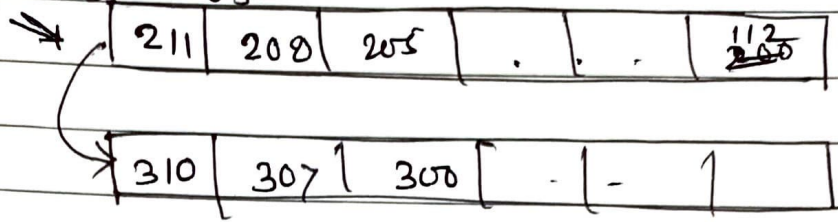 211 208 205 . . . 112
310 307 300 . -